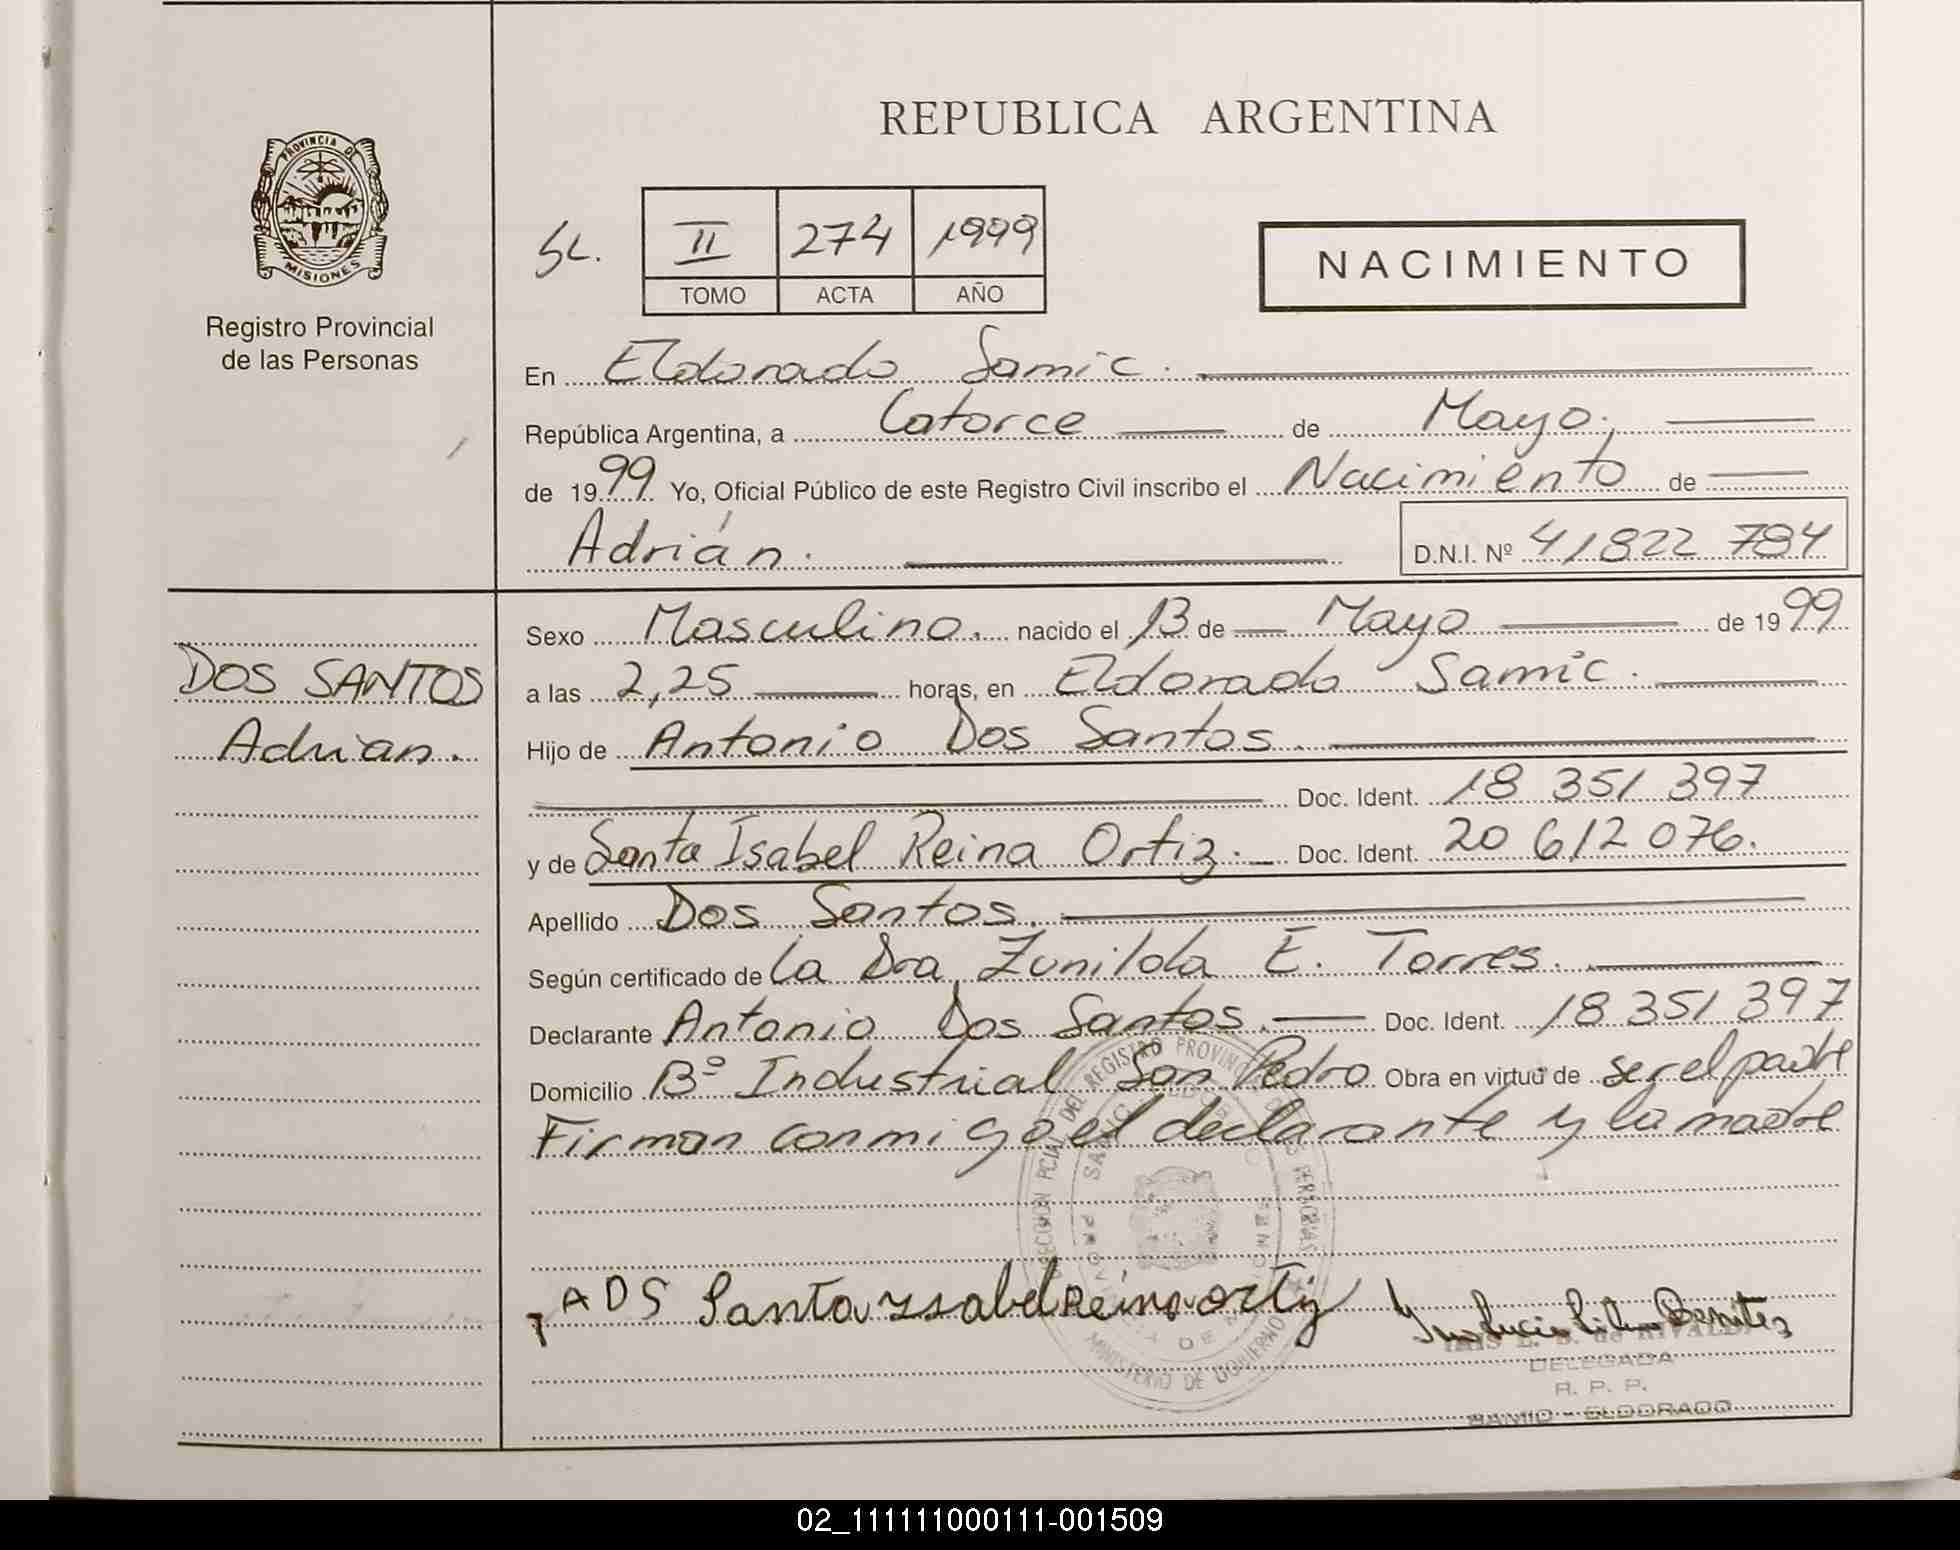 REPUBLICA ARGENTINA
PROVINCIA DE
MISIONES
Registro Provincial
de las Personas
SL. II 274 1999
TOMO ACTA AÑO
NACIMIENTO
En Eldorado Samic.
República Argentina, a Catorce de Mayo,
de 1999 Yo, Oficial Público de este Registro Civil inscribo el Nacimiento de
Adrián. D.N.I. Nº 41822 784
DOS SANTOS
Adrian.
Sexo Masculino. nacido el 13 de Mayo de 1999
a las 2,25 horas, en Eldorado Samic.
Hijo de Antonio Dos Santos.
Doc. Ident. 18 351 397
y de Santa Isabel Reina Ortiz. Doc. Ident. 20 612 076.
Apellido Dos Santos.
Según certificado de la Dra Zunilda E. Torres.
Declarante Antonio Dos Santos. Doc. Ident. 18 351 397
Domicilio Bº Industrial San Pedro Obra en virtud de ser el padre
Firman conmigo el declarante y la madre
ADS Santa ysabel Reina ortiz
DELEGADA
R. P. P.
SAMIC - ELDORADO
MINISTERIO DE GOBIERNO
02_111111000111-001509